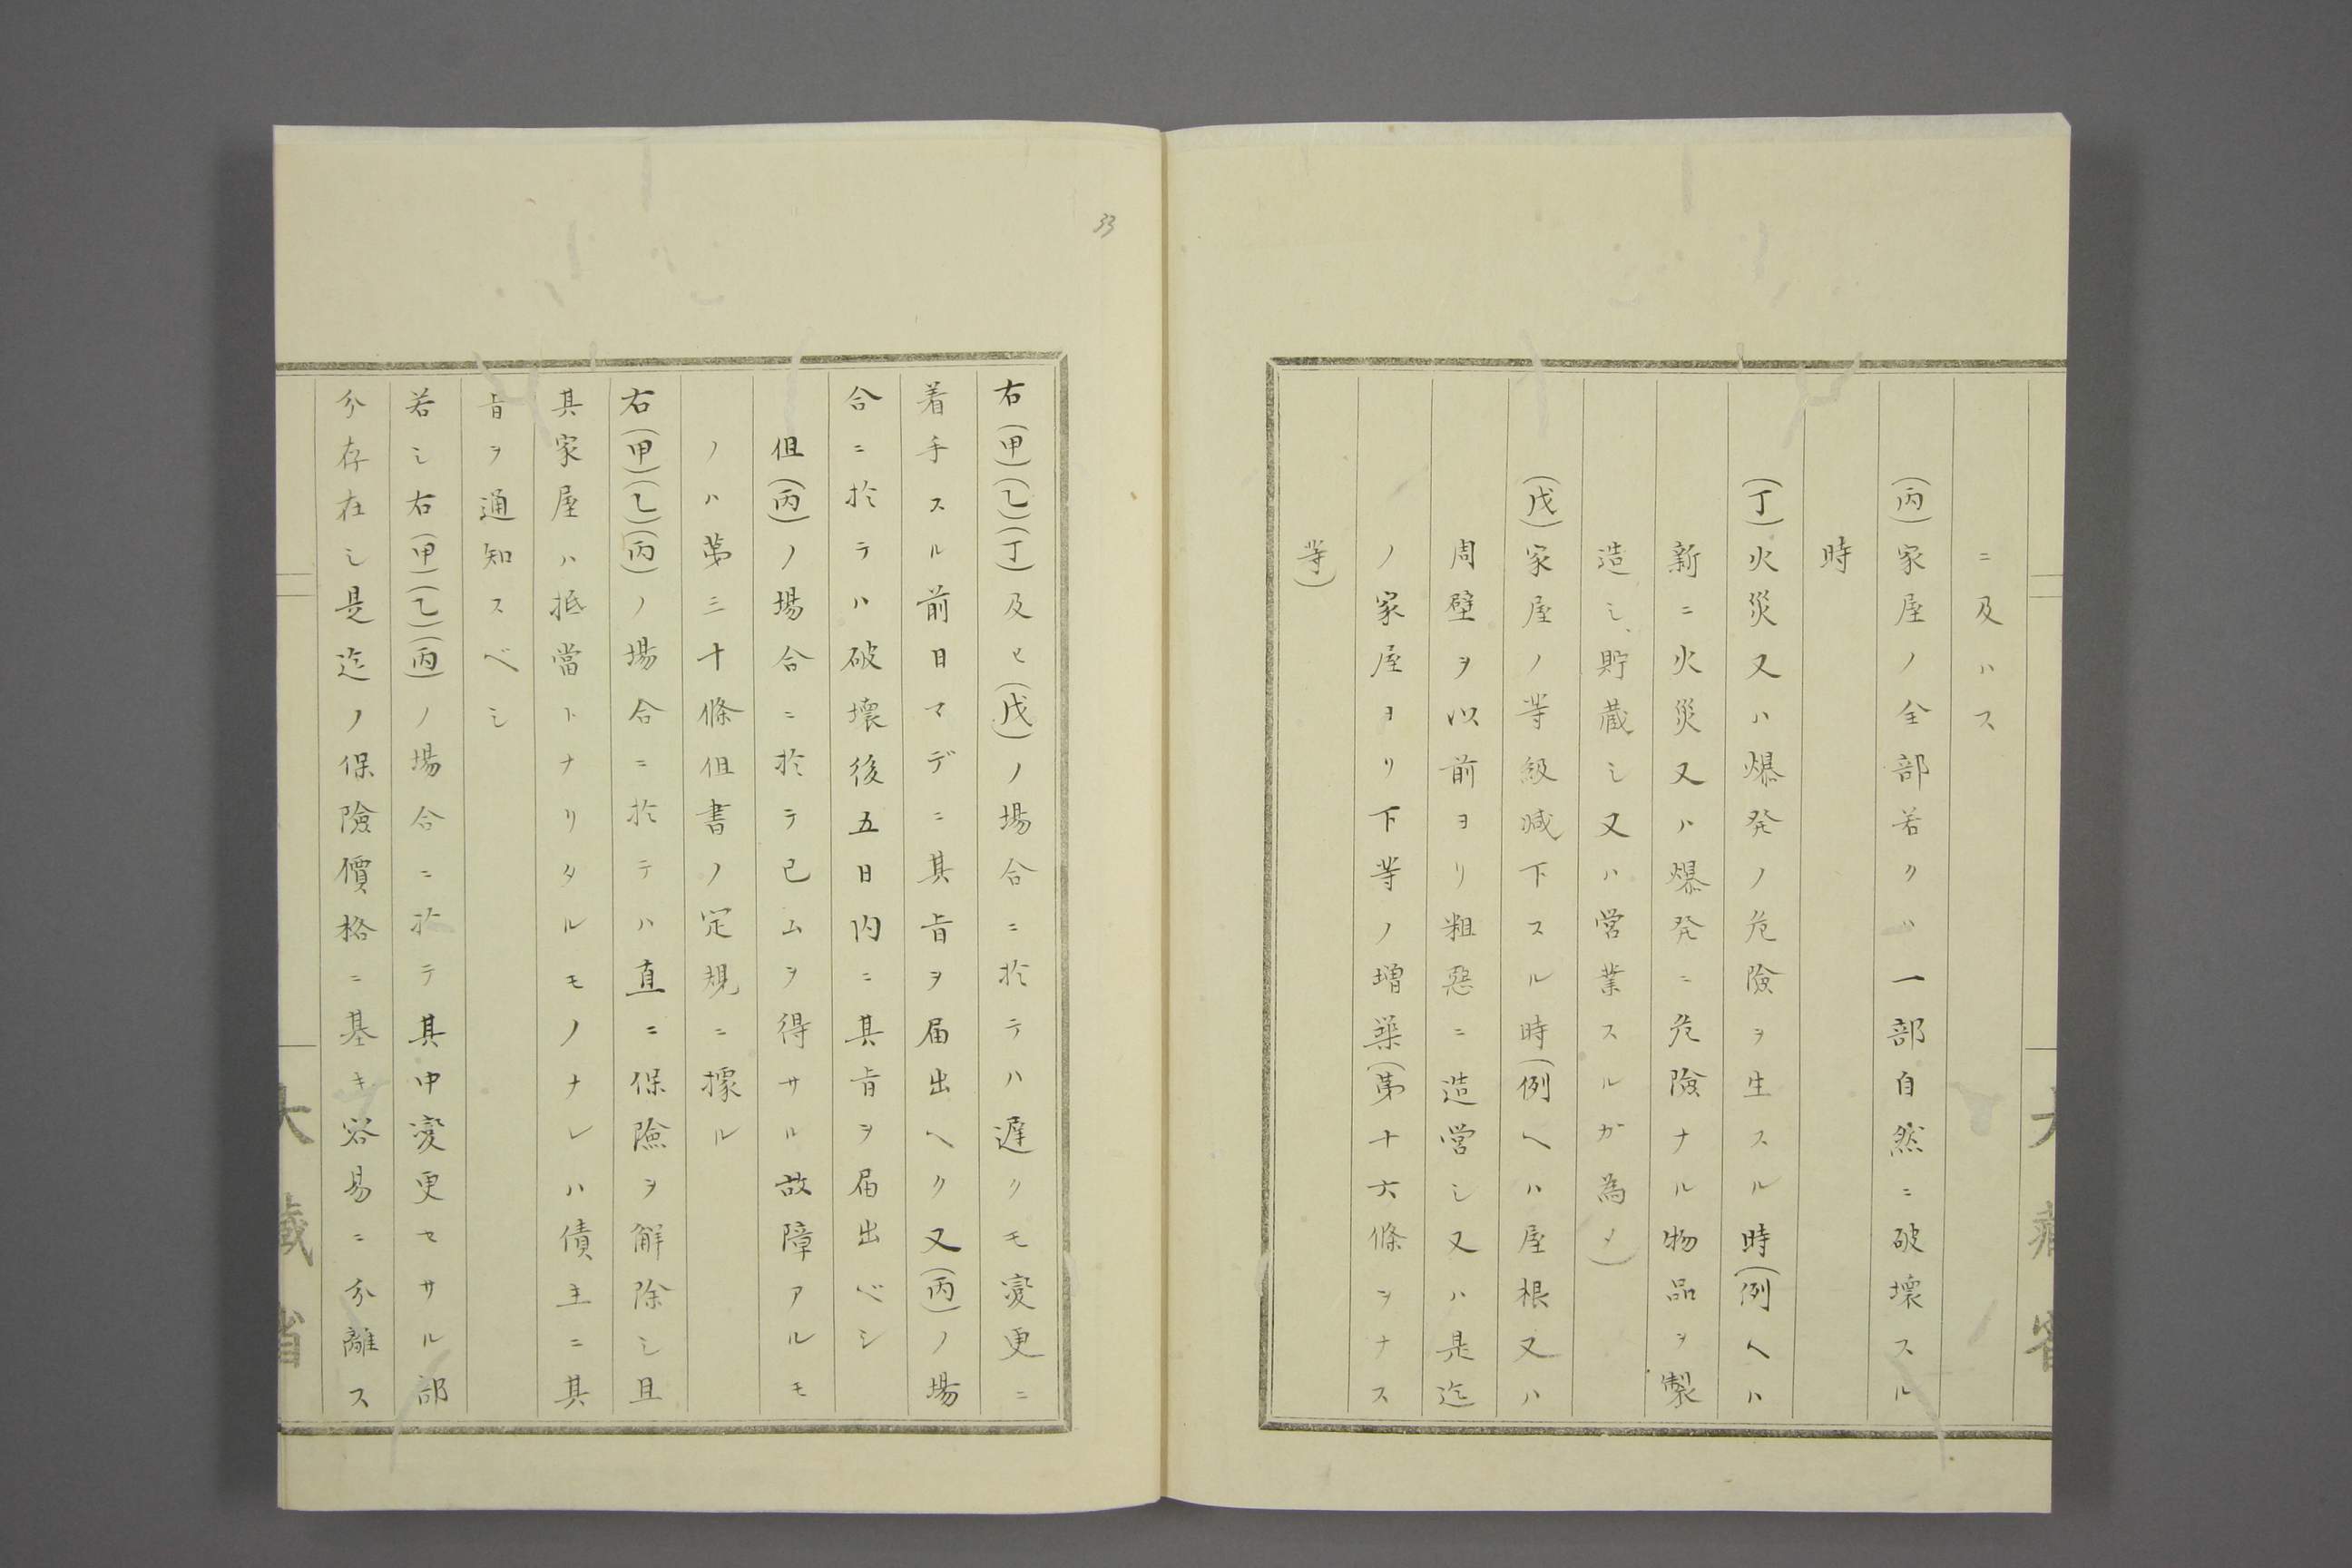 ニ及ハス
(丙)家屋ノ全部若クハ一部自然ニ破壊スル
時
(丁)火災又ハ爆発ノ危険ヲ生スル時(例ヘハ
新ニ火災又ハ爆発ニ危険ナル物品ヲ製
造シ、貯蔵シ又ハ営業スルガ為メ)
(戊)家屋ノ等級減下スル時(例ヘハ屋根又ハ
周壁ヲ以前ヨリ粗惡ニ造営シ又ハ是迄
ノ家屋ヨリ下等ノ増築(第十六條ヲナス
等)
33
右(甲)(乙)(丁)及ヒ(戊)ノ場合ニ於テハ遅クモ変更ニ
着手スル前日マデニ其旨ヲ届出ヘク又(丙)ノ場
合ニ於テハ破壊後五日内ニ其旨ヲ届出ベシ
但(丙)ノ場合ニ於テ已ムヲ得サル故障アルモ
ノハ第三十條但書ノ定規ニ據ル
右(甲)(乙)(丙)ノ場合ニ於テハ直ニ保険ヲ解除シ且
其家屋ハ抵當トナリタルモノナレハ債主ニ其
旨ヲ通知スベシ
若シ右(甲)(乙)(丙)ノ場合ニ於テ其中変更セサル部
分存在シ是迄ノ保険價格ニ基キ容易ニ分離ス
大藏省